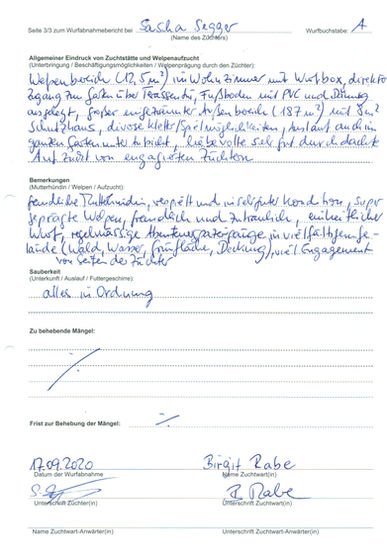 Seite 3/3 zum Wurfabnahmebericht bei Sascha Segger Wurfbuchstabe: A
(Name des Züchters)
Allgemeiner Eindruck von Zuchtstätte und Welpenaufzucht
(Unterbringung / Beschäftigungsmöglichkeiten / Welpenprägung durch den Züchter):
Welpenbereich (12,5 m²) im Wohnzimmer mit Wurfbox, direkter
Zugang zum Garten über Terassentür, Fußboden mit PVC und
ausgelegt, großer umzäunter Außenbereich (187 m²) mit 5m²
Schutzhaus, diverse Kletter/Spielmöglichkeiten, Auslauf auch im
ganzen Garten unter Aufsicht, liebevolle sehr gut durchdachte
Aufzucht von engagierten Züchtern
Bemerkungen
(Mutterhündin / Welpen / Aufzucht):
freundliche Mutterhündin, verspielt und in sehr guter Kondition, super
geprägte Welpen, freundlich und zutraulich, einheitlicher
Wurf, regelmässige Abenteuerspaziergänge in vielfältigem Ge-
lände (Wald, Wasser, Grünfläche, Deckung), viel Engagement
von seiten der Züchter
Sauberkeit
(Unterkunft / Auslauf / Futtergeschirre):
alles in Ordnung
Zu behebende Mängel:
Frist zur Behebung der Mängel:
17.09.2020 Birgit Rabe
Datum der Wurfabnahme Name Zuchtwart(in)
B. Rabe
Unterschrift Züchter(in) Unterschrift Zuchtwart(in)
Name Zuchtwart-Anwärter(in) Unterschrift Zuchtwart-Anwärter(in)